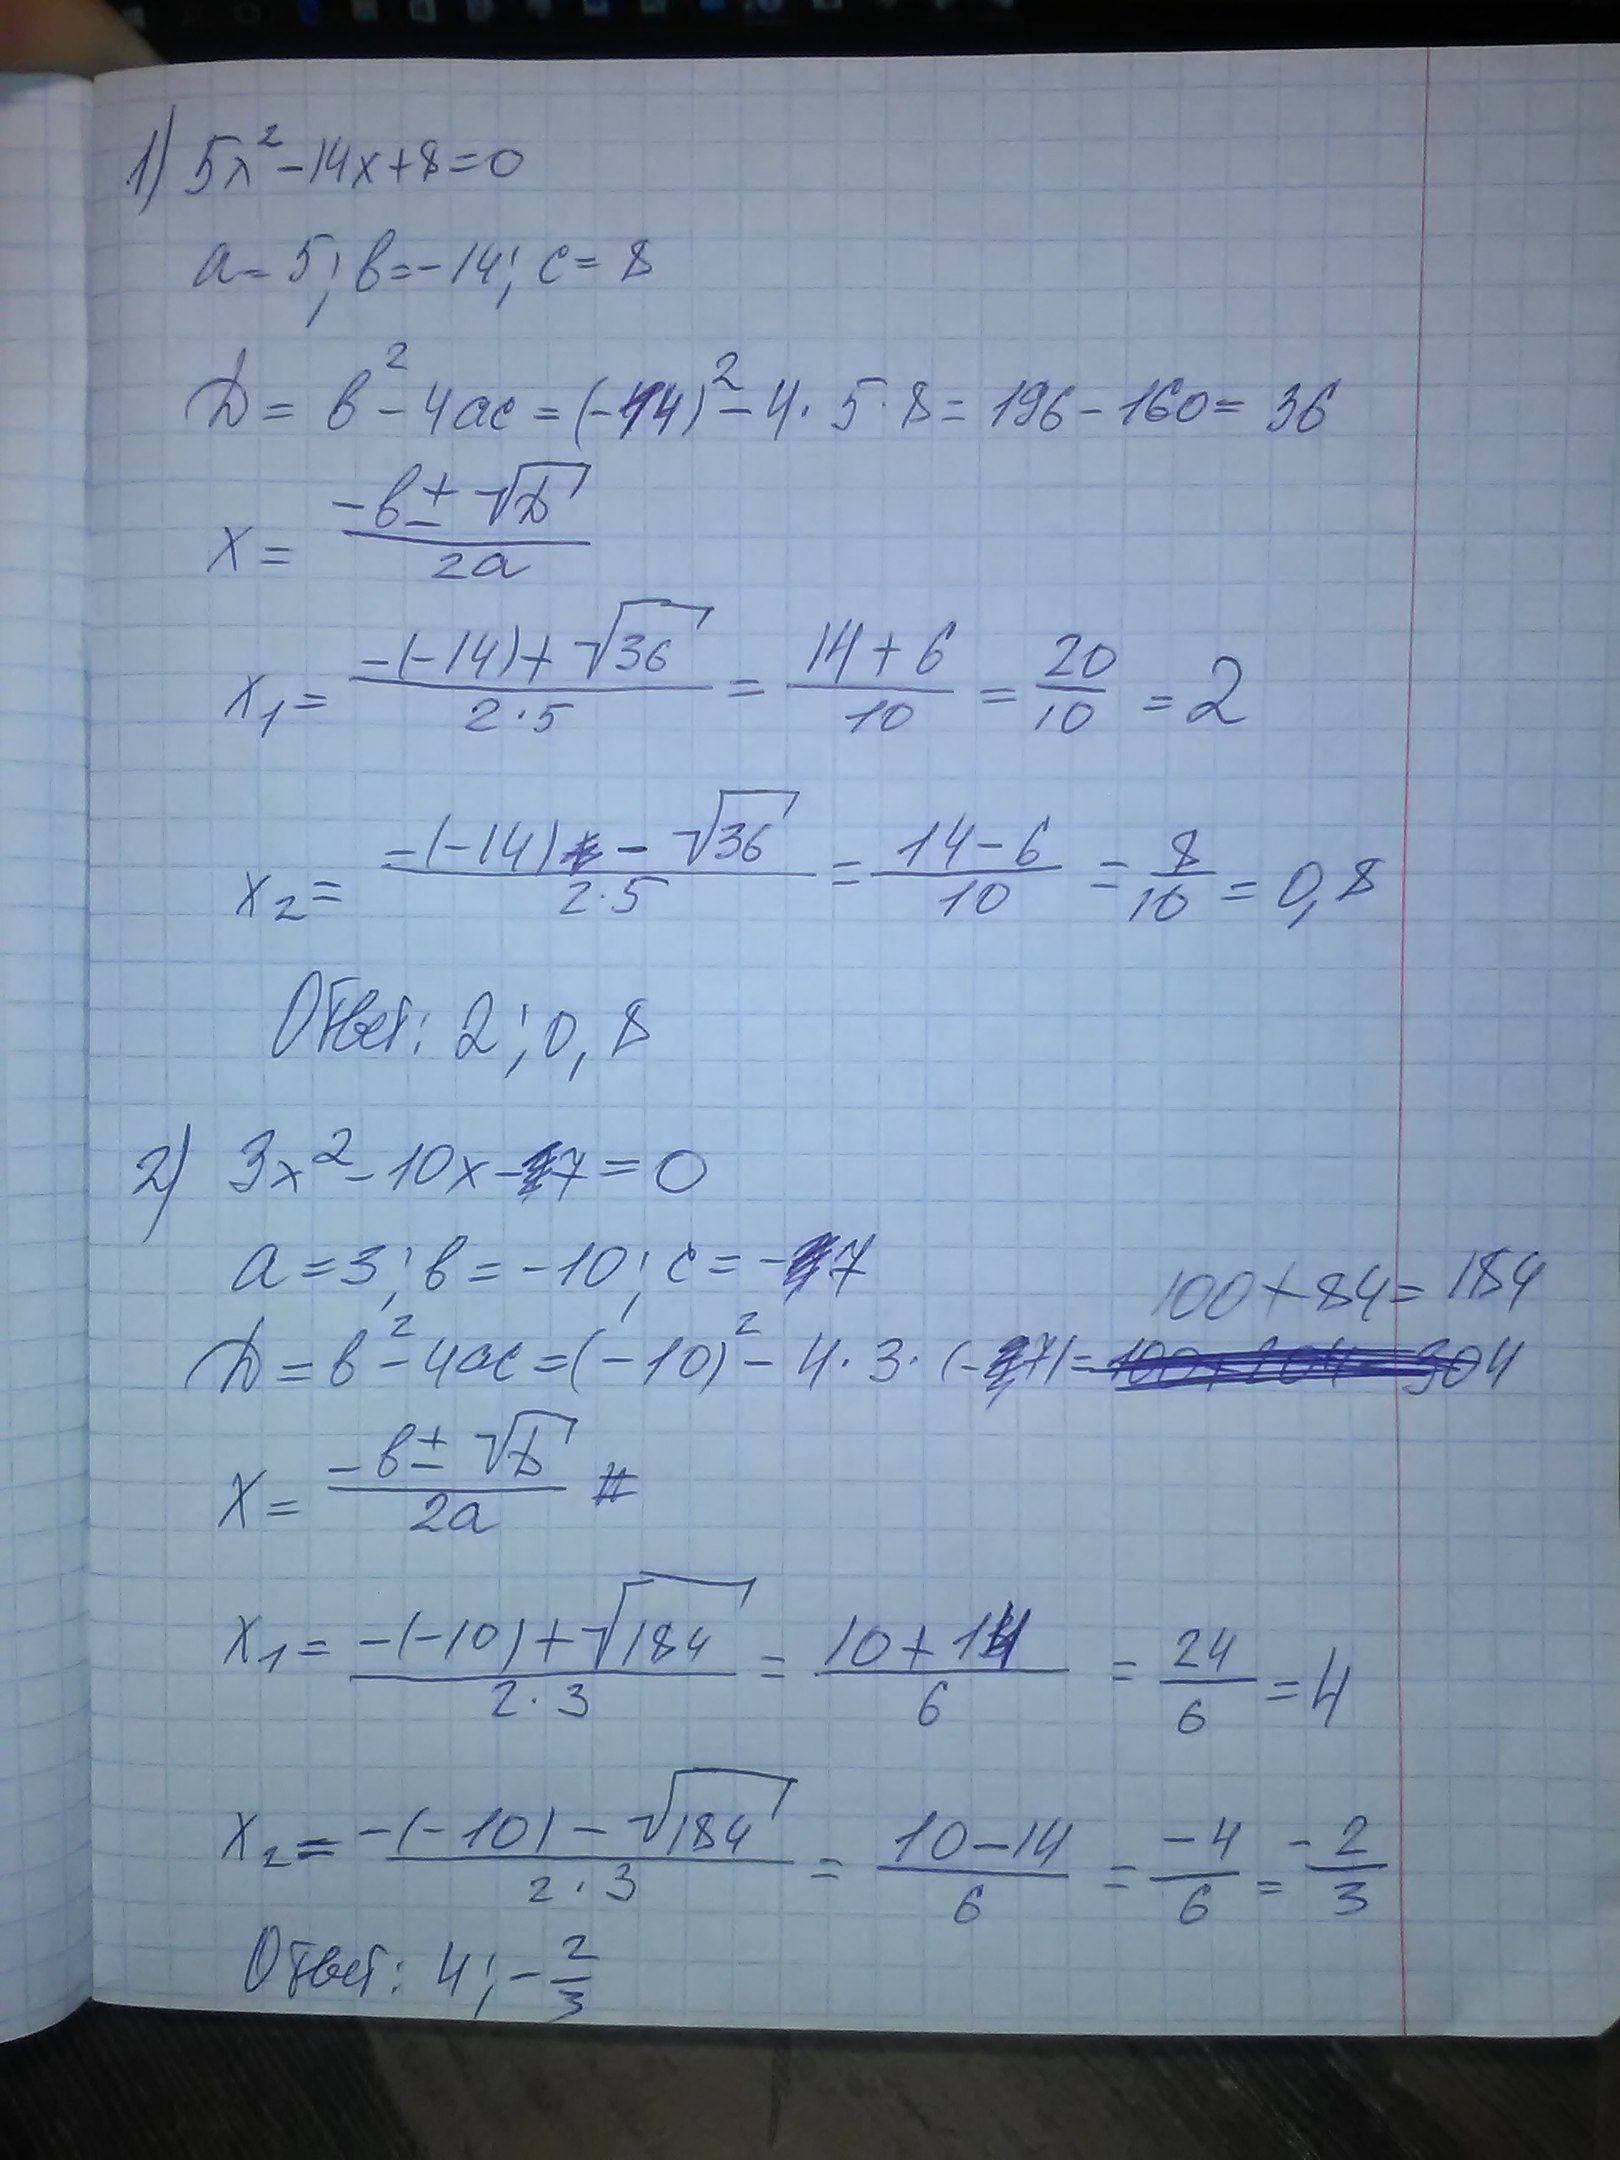 1) 5x² - 14x + 8 = 0
a = 5; в = -14; c = 8
D = в² - 4ac = (-14)² - 4 · 5 · 8 = 196 - 160 = 36
x = (-в ± √D) / 2a
x₁ = (-(-14) + √36) / (2 · 5) = (14 + 6) / 10 = 20/10 = 2
x₂ = (-(-14) - √36) / (2 · 5) = (14 - 6) / 10 = 8/10 = 0,8
Ответ: 2; 0,8
2) 3x² - 10x - 7 = 0
a = 3; в = -10; c = -7
100 + 84 = 184
D = в² - 4ac = (-10)² - 4 · 3 · (-7) = 100 + 204 = 304
x = (-в ± √D) / 2a
x₁ = (-(-10) + √184) / (2 · 3) = (10 + 14) / 6 = 24/6 = 4
x₂ = (-(-10) - √184) / (2 · 3) = (10 - 14) / 6 = -4/6 = -2/3
Ответ: 4; -2/3